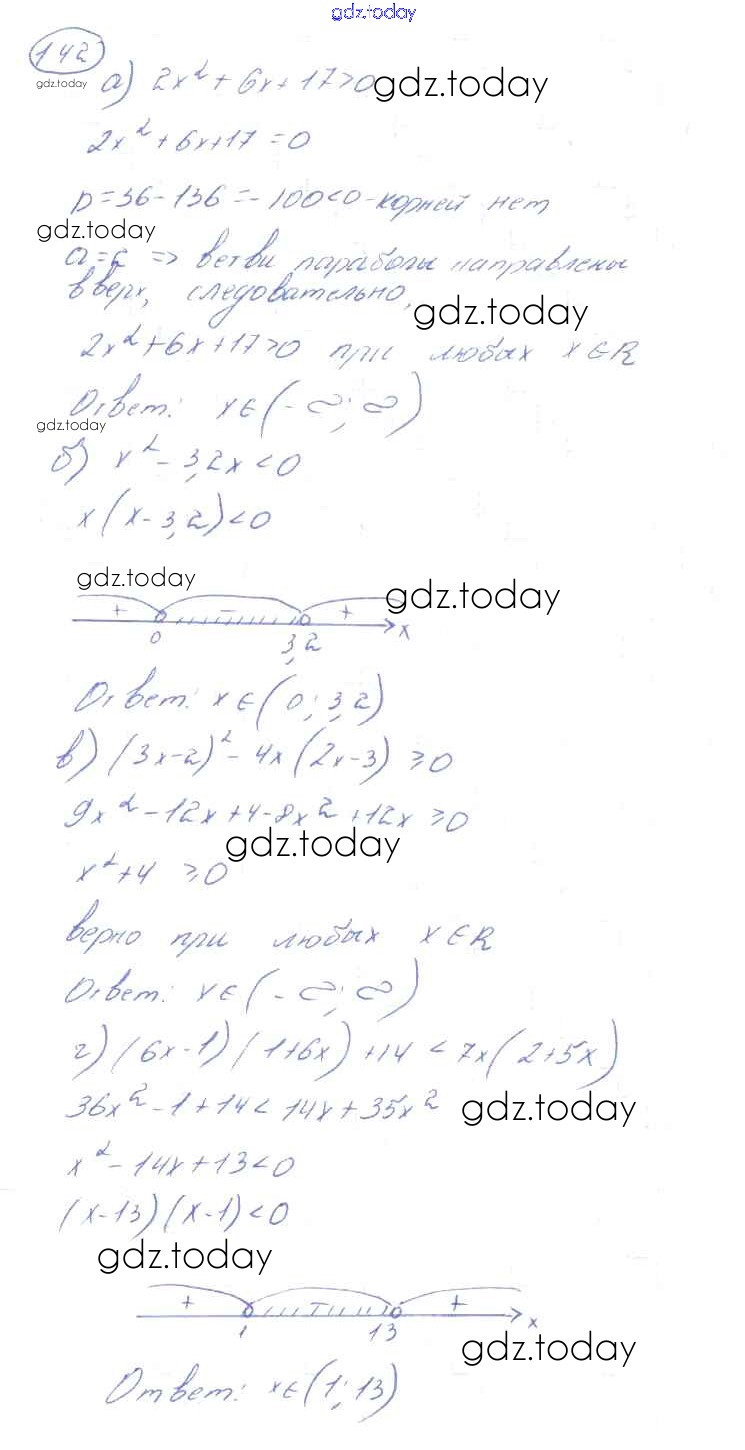 gdz.today
142
gdz.today
а) 2x² + 6x + 17 > 0 gdz.today
2x² + 6x + 17 = 0
D = 36 - 136 = -100 < 0 - корней нет
gdz.today
a = 2 => ветви параболы направлены
вверх, следовательно,
gdz.today
2x² + 6x + 17 > 0 при любых x ∈ R
Ответ: x ∈ (-∞; ∞)
gdz.today
б) x² - 3,2x < 0
x(x - 3,2) < 0
gdz.today
gdz.today
+ - +
0 3,2 x
Ответ: x ∈ (0; 3,2)
в) (3x-2)² - 4x(2x-3) ≥ 0
9x² - 12x + 4 - 8x² + 12x ≥ 0
gdz.today
x² + 4 ≥ 0
верно при любых x ∈ R
Ответ: x ∈ (-∞; ∞)
г) (6x-1)(1+6x) + 14 < 7x(2+5x)
36x² - 1 + 14 < 14x + 35x² gdz.today
x² - 14x + 13 < 0
(x-13)(x-1) < 0
gdz.today
+ - +
1 13 x
gdz.today
Ответ: x ∈ (1; 13)